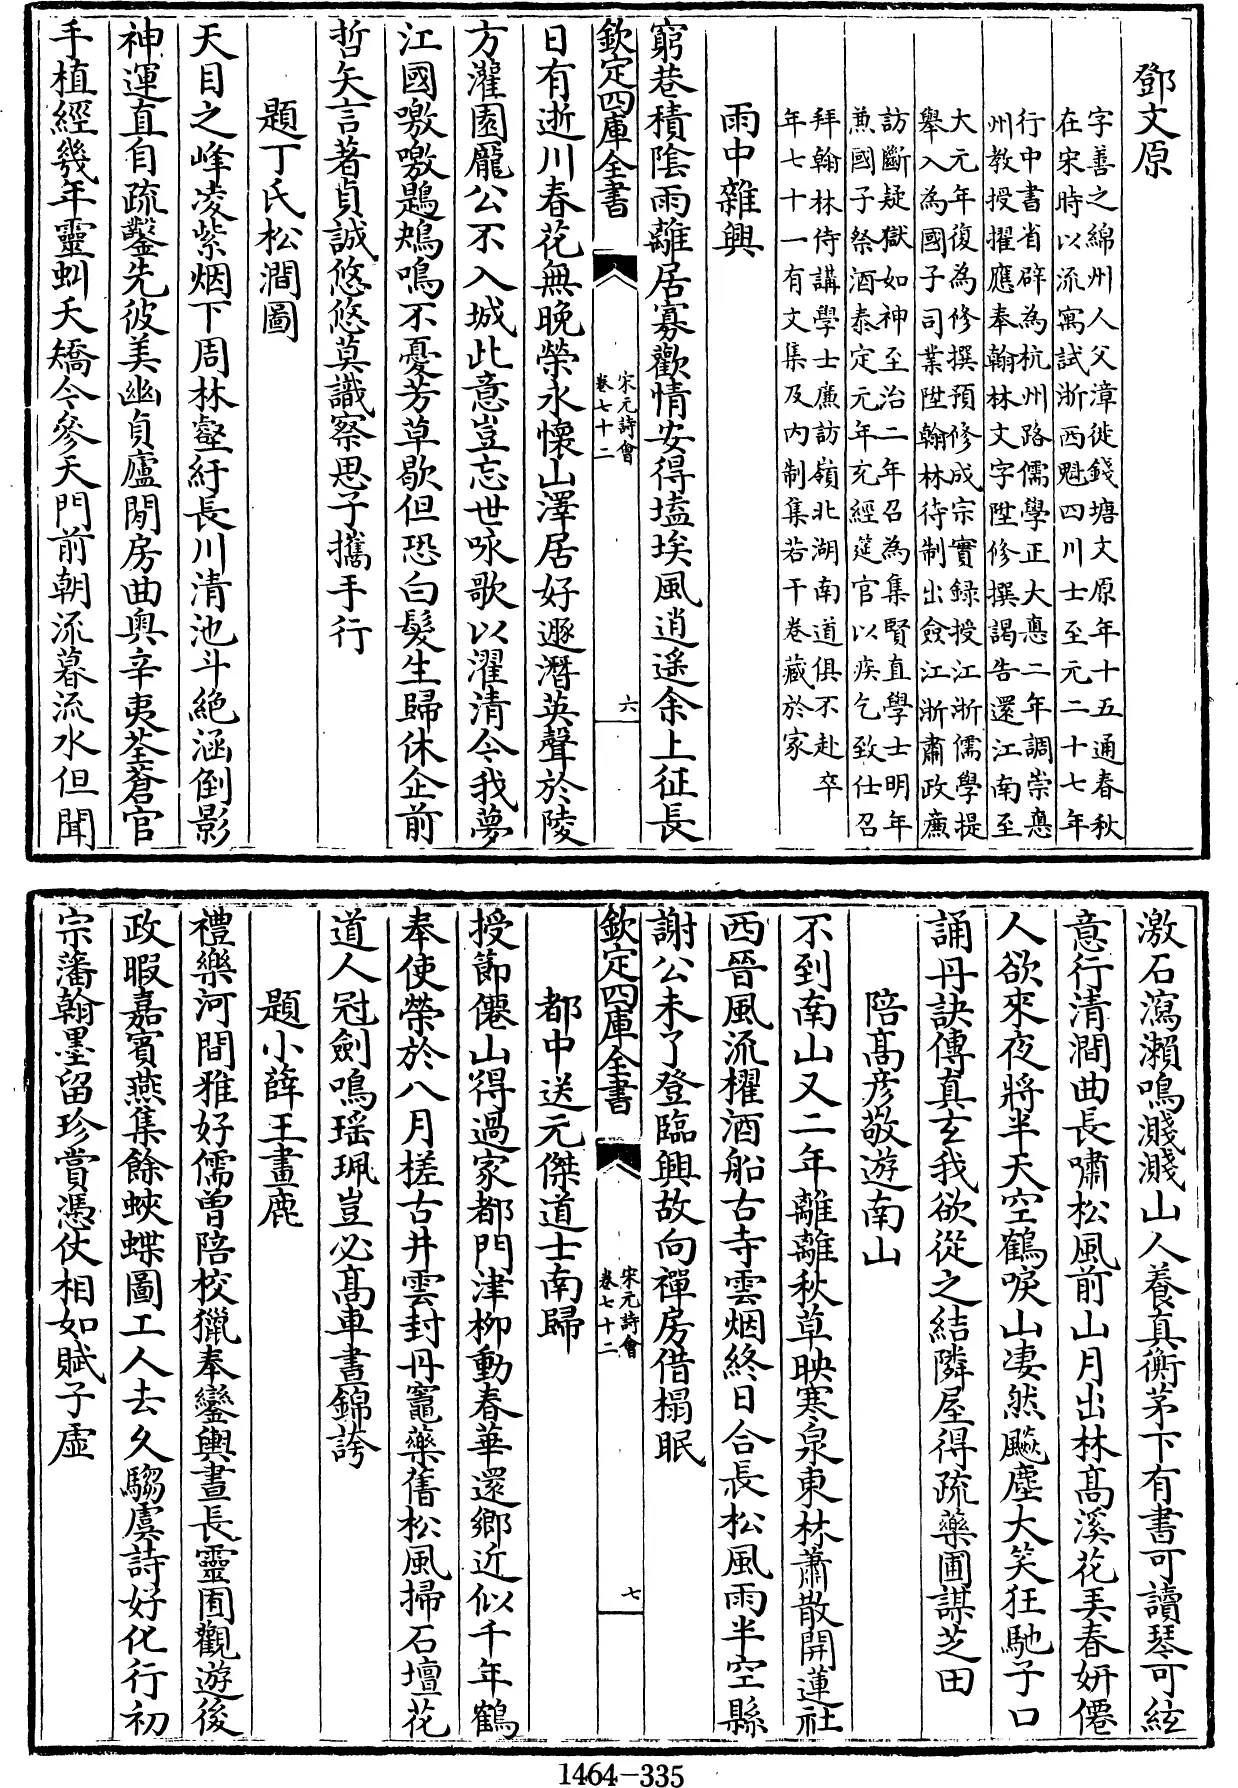 鄧文原
字善之綿州人父漳徙錢塘文原年十五通春秋
在宋時以流寓試浙西魁四川士至元二十七年
行中書省辟為杭州路儒學正大德二年調崇德
州教授擢應奉翰林文字陞修撰謁告還江南至
大元年復為修撰預修成宗實録授江浙儒學提
舉入為國子司業陞翰林待制出僉江浙肅政㢘
訪斷疑獄如神至治二年召為集賢直學士明年
兼國子祭酒泰定元年充經筵官以疾乞致仕召
拜翰林侍講學士㢘訪嶺北湖南道俱不赴卒
年七十一有文集及内制集若干卷藏於家
雨中雜興
窮巷積陰雨離居寡歡情安得埃壒風逍遥余上征長
欽定四庫全書
宋元詩會
卷七十二
六
日有逝川春花無晚榮永懷山澤居好遯潛英聲於陵
方灌園龎公不入城此意豈忘世咏歌以濯清今我夢
江國嗷嗷鶗鴂鳴不憂芳草歇但恐白髮生歸休企前
哲矢言著貞誠悠悠莫識察思子攜手行
題丁氏松澗圖
天目之峰凌紫烟下周林壑紆長川清池斗絶涵倒影
神運直自疏鑿先彼美幽貞廬閒房曲奥辛夷荃蒼官
手植經幾年靈虯夭矯今參天門前朝流暮流水但聞
激石瀉瀨鳴濺濺山人養真衡茅下有書可讀琴可絃
意行清澗曲長嘯松風前山月出林髙溪花美春妍僊
人欲來夜將半天空鶴唳山凄然飈塵大笑狂馳子口
誦丹訣傳真玄我欲從之結隣屋得疏藥圃謀芝田
陪髙彦敬遊南山
不到南山又二年離離秋草映寒泉東林蕭散開蓮社
西晉風流櫂酒船古寺雲烟終日合長松風雨半空縣
謝公未了登臨興故向禪房借榻眠
欽定四庫全書
宋元詩會
卷七十二
七
都中送元傑道士南歸
授節僊山得過家都門津柳動春華還鄉近似千年鶴
奉使榮於八月槎古井雲封丹竈藥舊松風掃石壇花
道人冠劍鳴瑶珮豈必髙車晝錦誇
題小薛王畫鹿
禮樂河間雅好儒曽陪校獵奉鑾輿晝長靈囿觀遊後
政暇嘉賓燕集餘蛺蝶圖工人去久騶虞詩好化行初
宗藩翰墨留珍賞憑仗相如賦子虚
1464-335